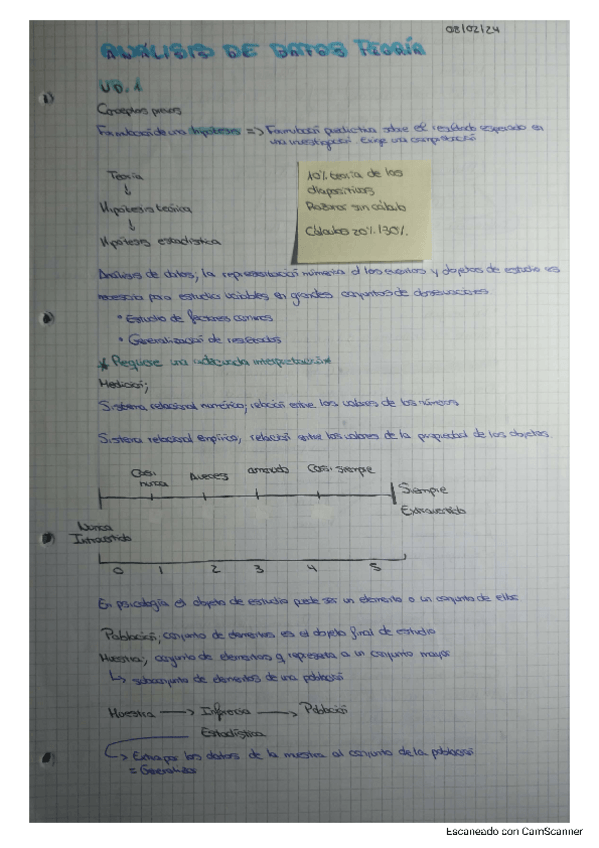 08/02/24
ANÁLISIS DE DATOS TEORÍA
UD. 1
Conceptos previos
Formulación de una hipótesis => Formulación predictiva sobre el resultado esperado en
una investigación. Exige una comprobación
Teoría
↓
Hipótesis teórica
↓
Hipótesis estadística
10% teoría de las
diapositivas
Razonar sin cálculo
Cálculos 20% 130%
Análisis de datos; la representación numérica d los eventos y objetos de estudio es
necesaria para estudiar variables en grandes conjuntos de observaciones
• Estudio de factores comunes
• Generalización de resultados
* Requiere una adecuada interpretación*
Medición;
Sistema relacional numérico; relación entre los valores de los números
Sistema relacional empírico; relación entre los valores de la propiedad de los objetos.
Casi nunca Aveces amenudo Casi siempre
Siempre
Extravertido
Nunca
Introvertido
0 1 2 3 4 5
En psicología el objeto de estudio puede ser un elemento o un conjunto de ellos
Población; conjunto de elementos es el objeto final de estudio
Muestra; conjunto de elementos q representa a un conjunto mayor
↳ subconjunto de elementos de una población
Muestra → Inferencia → Población
Estadística
→ Extrapolar los datos de la muestra al conjunto de la población
= Generalizar
Escaneado con CamScanner